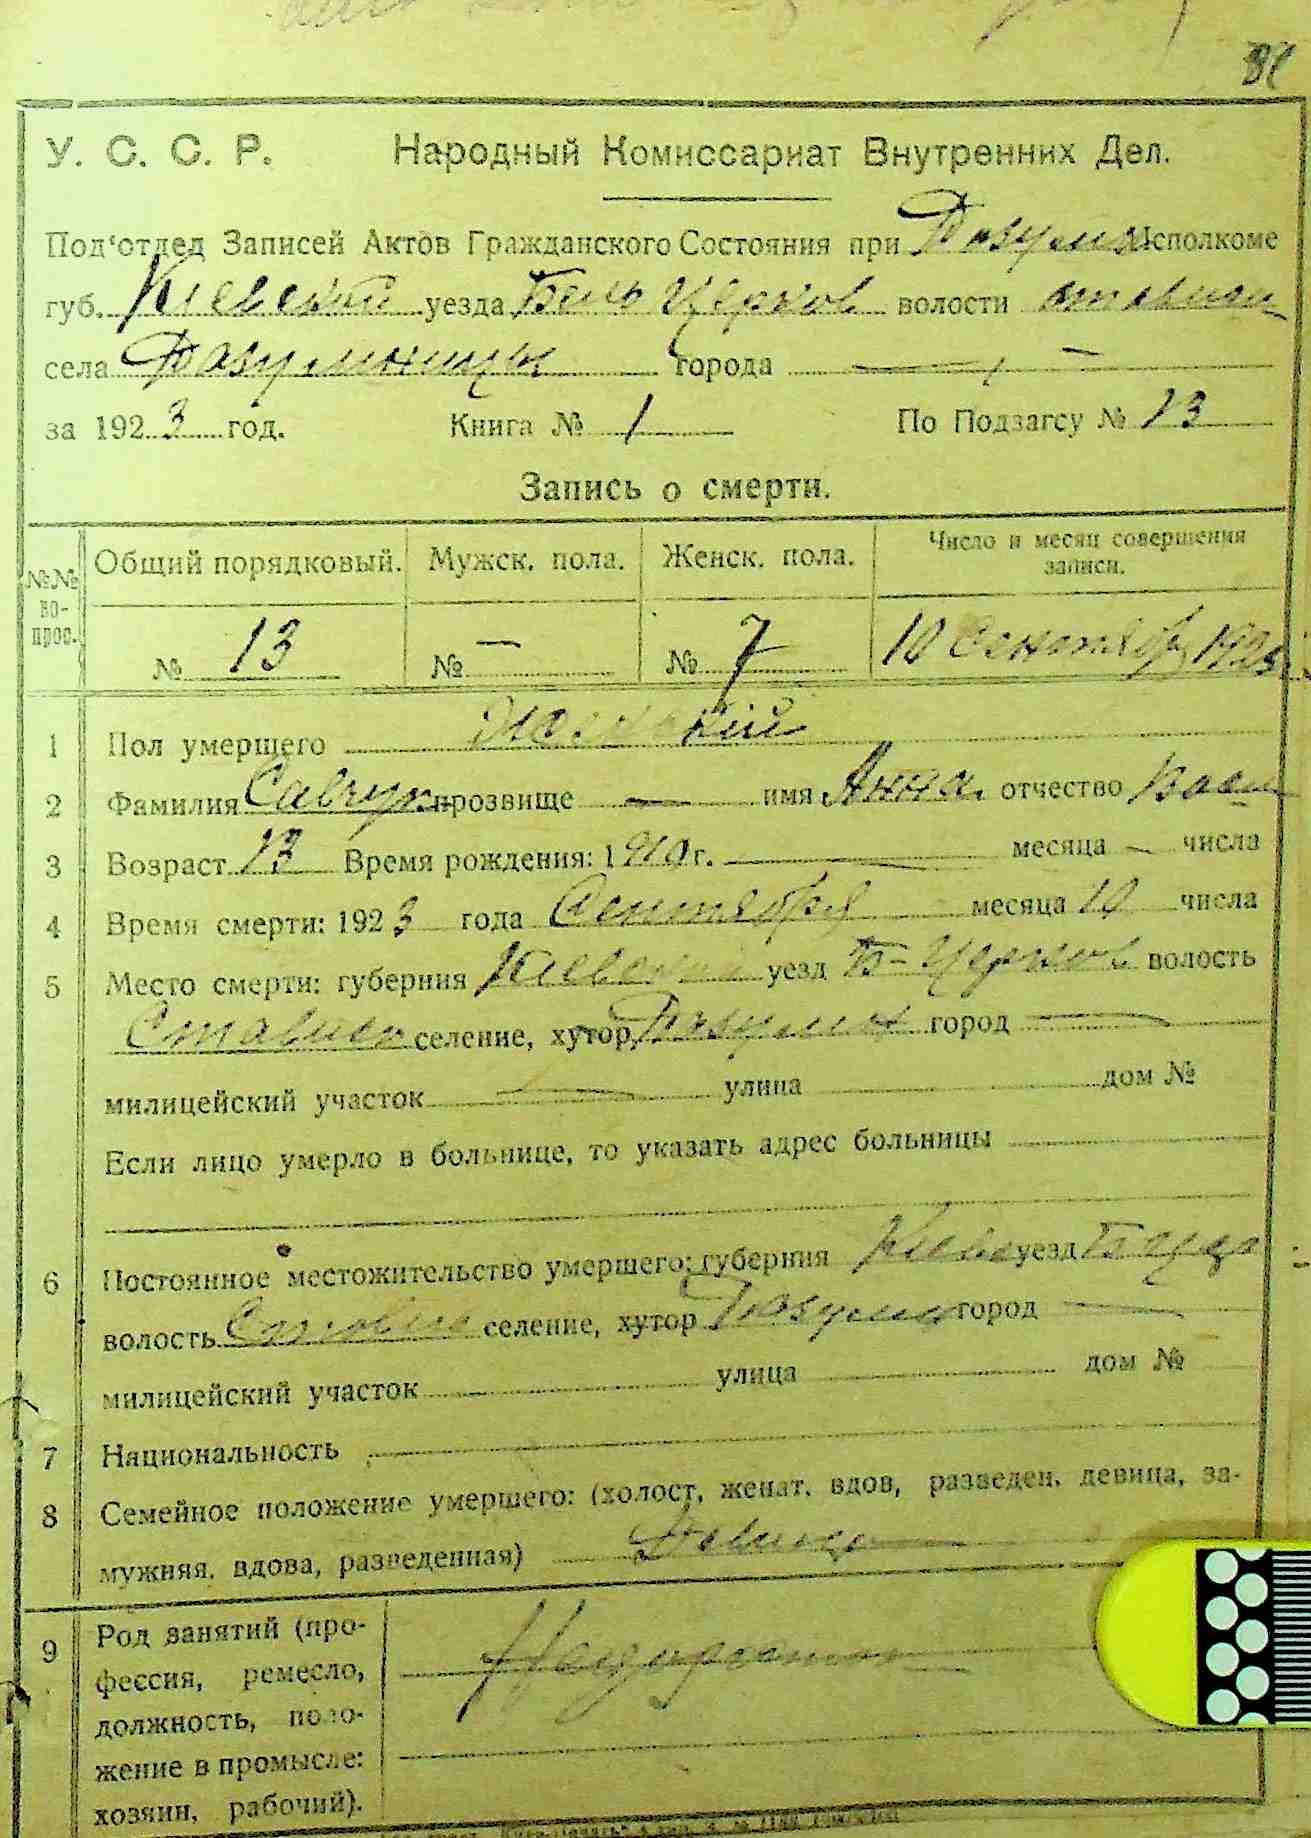 У. С. С. Р. Народный Комиссариат Внутренних Дел.
Под'отдел Записей Актов Гражданского Состояния при Исполкоме
губ. Киевской уезда Бель Церков волости
села города —
за 1923 год. Книга № 1 По Подзагсу № 13
Запись о смерти.
№№ во- прос. Общий порядковый. Мужск. пола. Женск. пола. Число и месяц совершения записи.
№ 13 № — № 7 10 Сентября 1923
1 Пол умершего Женский
2 Фамилия Савчук прозвище — имя Анна отчество Васил
3 Возраст 13 Время рождения: 1910 г. — месяца — числа
4 Время смерти: 1923 года Сентября месяца 10 числа
5 Место смерти: губерния Киевская уезд Б-Церков волость
селение, хутор город —
милицейский участок — улица дом №
Если лицо умерло в больнице, то указать адрес больницы
6 Постоянное местожительство умершего: губерния Киевс уезд Б Цер
волость селение, хутор город —
милицейский участок улица дом №
7 Национальность
8 Семейное положение умершего: (холост, женат, вдов, разведен, девица, за-
мужняя, вдова, разведенная) Девица
9 Род занятий (про-
фессия, ремесло,
должность, поло-
жение в промысле:
хозяин, рабочий).